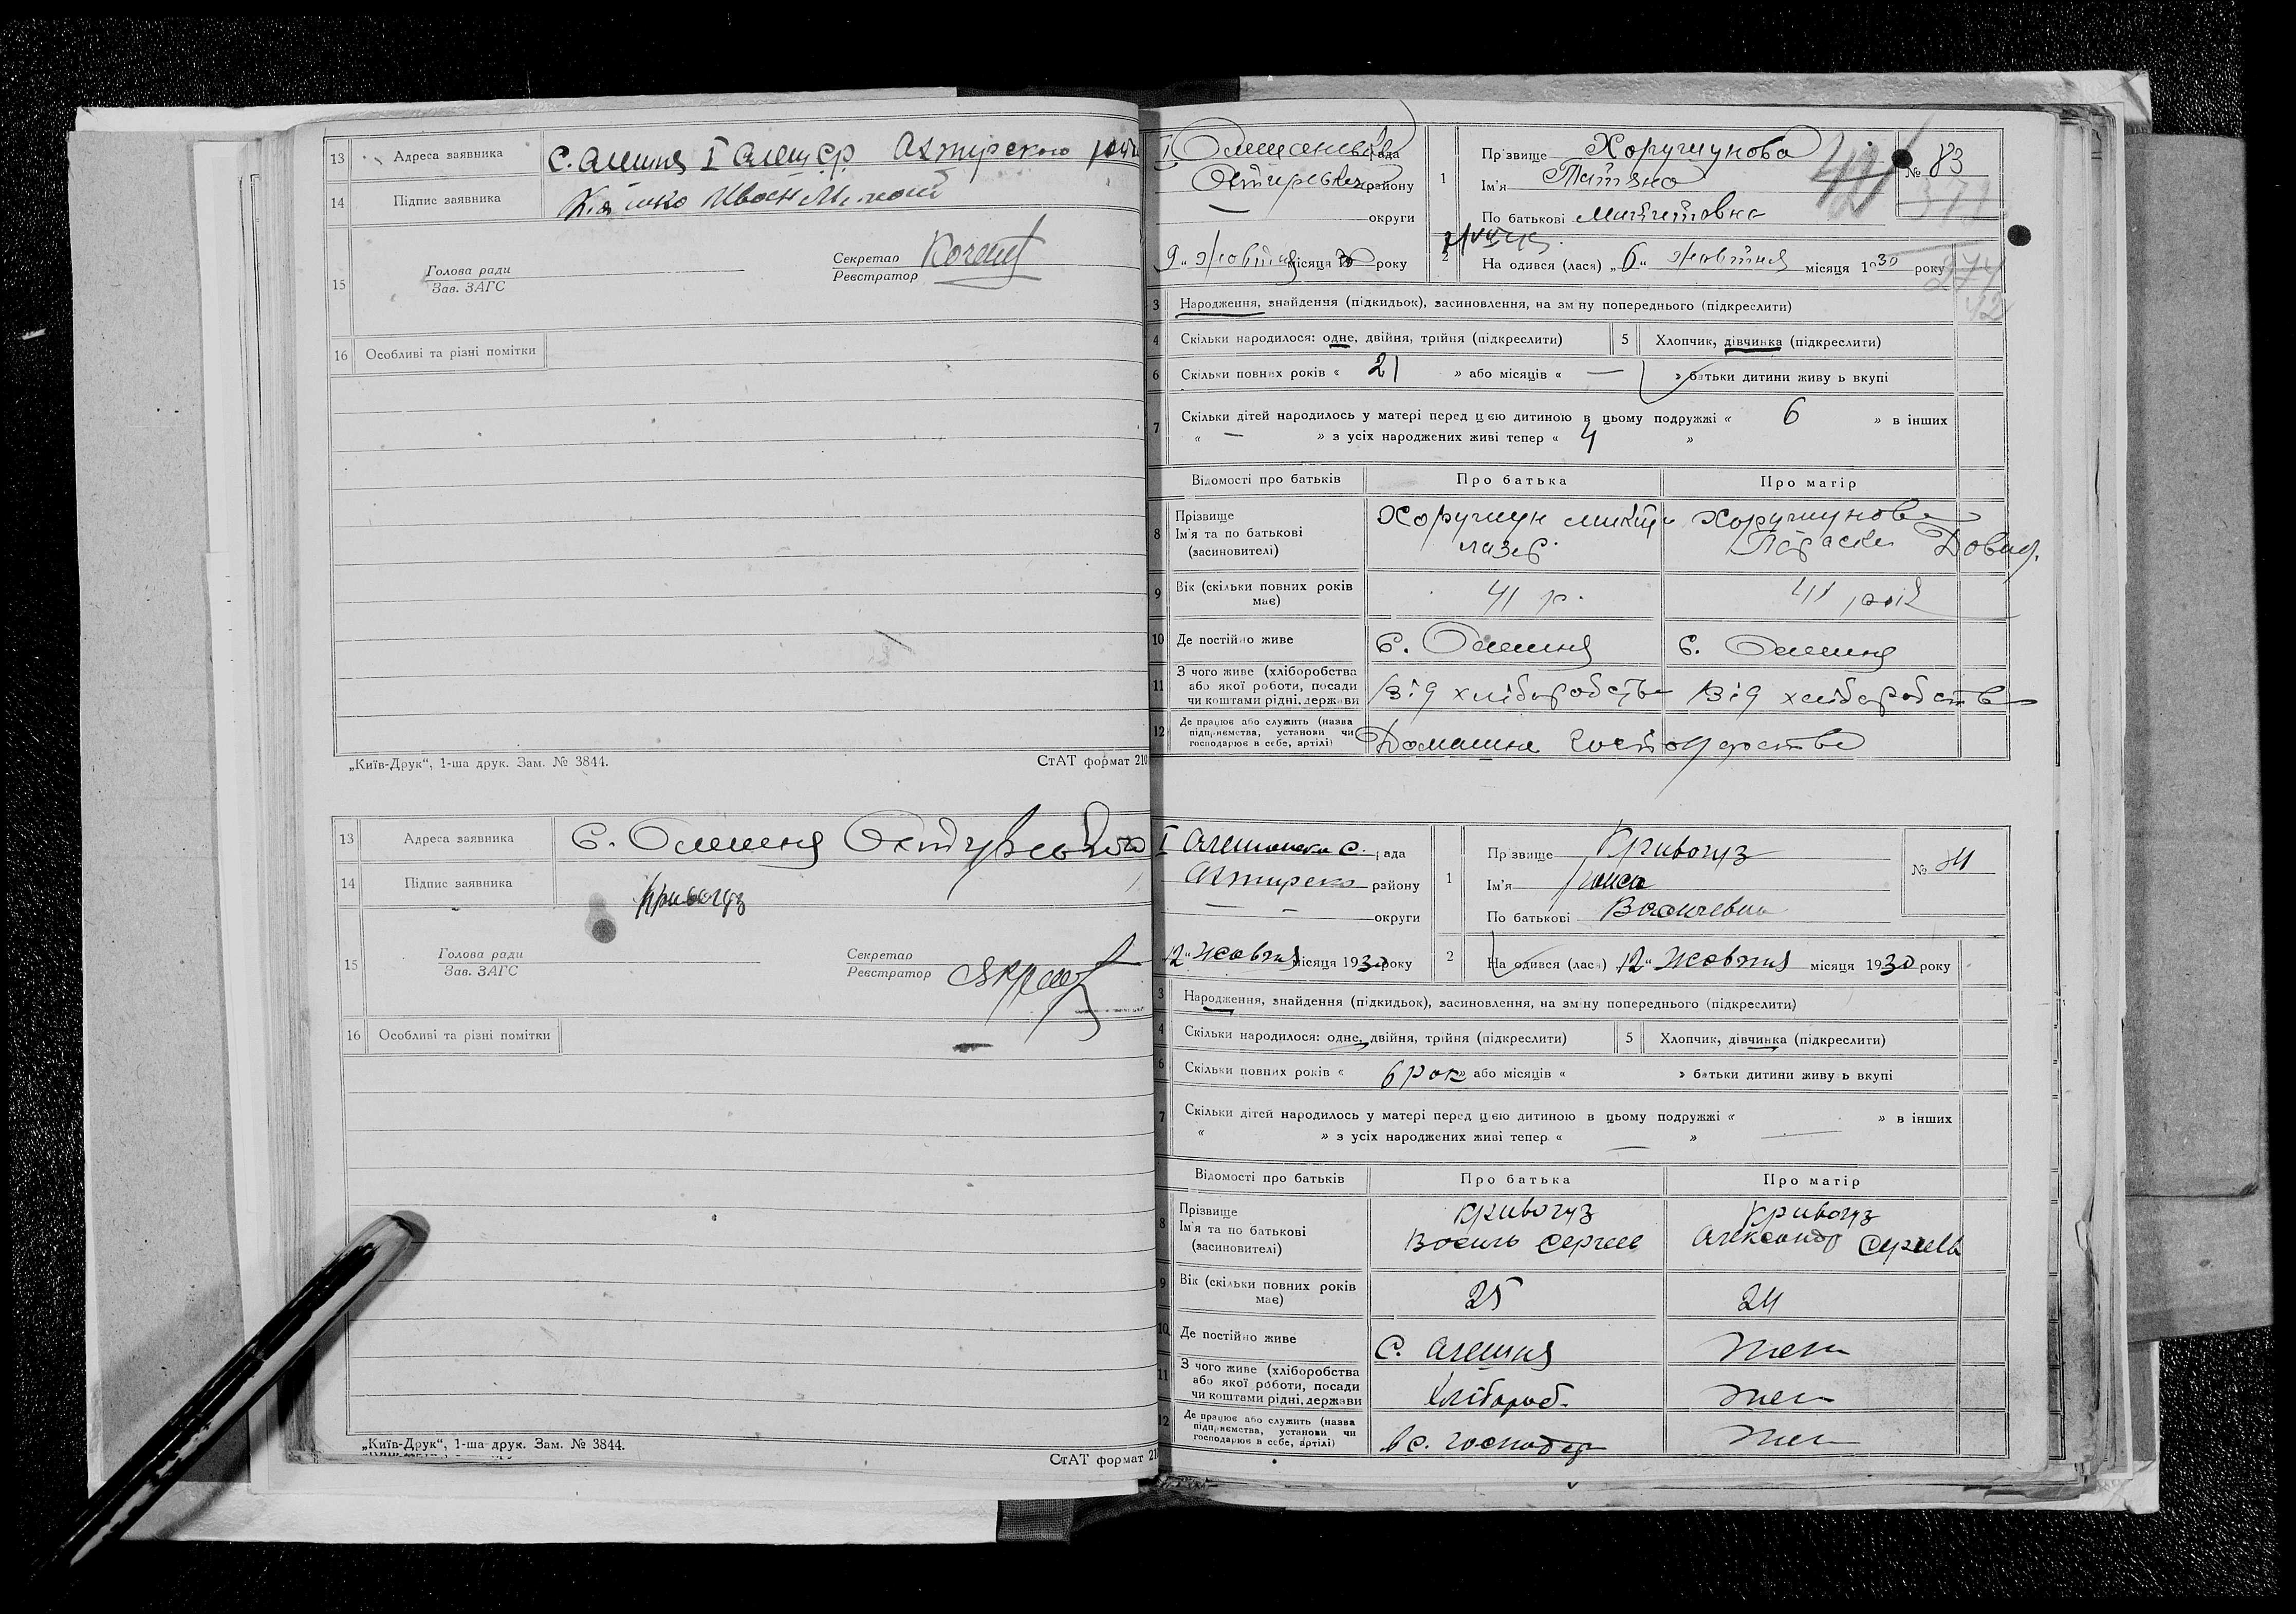 13 Адреса заявника С. Алешня І Алеш ср Ахтирского
14 Підпис заявника Иван
15 Голова ради
Зав. ЗАГС
Секретар
Реєстратор
16 Особливі та різні помітки
„Київ-Друк“, 1-ша друк. Зам. № 3844.
СтАТ формат 210
13 Адреса заявника С. Олешня
14 Підпис заявника Кривогуз
15 Голова ради
Зав. ЗАГС
Секретар
Реєстратор
16 Особливі та різні помітки
„Київ-Друк“, 1-ша друк. Зам. № 3844.
СтАТ формат 210
рада
району
округи
9 „ жовтня місяця 1930 року
1 Прізвище Хоружунова
Ім'я Тетяна
По батькові Микитовна
№ 83
42
371
2 На одився (лася) „6“ жовтня місяця 1930 року
274
42
3 Народження, знайдення (підкидьок), засиновлення, на зміну попереднього (підкреслити)
4 Скільки народилося: одне, двійня, трійня (підкреслити) 5 Хлопчик, дівчинка (підкреслити)
6 Скільки повних років « 21 » або місяців « — » батьки дитини живуть вкупі
7 Скільки дітей народилось у матері перед цією дитиною в цьому подружжі « 6 » в інших
« — » з усіх народжених живі тепер « 4 »
Відомості про батьків Про батька Про матір
8 Прізвище
Ім'я та по батькові
(засиновителі)
Хоружун Микит
Лазер.
Хоружунова
Параска Довид.
9 Вік (скільки повних років має) 41 р. 41 рік
10 Де постійно живе С. Олешня С. Олешня
11 З чого живе (хліборобства
або якої роботи, посади
чи коштами рідні, держави
Від хліборобства Від хліборобства
12 Де працює або служить (назва
підприємства, установи чи
господарює в себе, артілі)
Домашне господарство
І Алешанска С. рада
Ахтирско району
— — округи
12 „ Жовтня місяця 1930 року
1 Прізвище Кривогуз
Ім'я
По батькові Васильевна
№ 84
2 На одився (лася) „12“ Жовтня місяця 1930 року
3 Народження, знайдення (підкидьок), засиновлення, на зміну попереднього (підкреслити)
4 Скільки народилося: одне, двійня, трійня (підкреслити) 5 Хлопчик, дівчинка (підкреслити)
6 Скільки повних років « 6 рок » або місяців « » батьки дитини живуть вкупі
7 Скільки дітей народилось у матері перед цією дитиною в цьому подружжі « — » в інших
« » з усіх народжених живі тепер « — »
Відомості про батьків Про батька Про матір
8 Прізвище
Ім'я та по батькові
(засиновителі)
Кривогуз
Василь Сергеев
Кривогуз
Александр Сергеев
9 Вік (скільки повних років має) 25 24
10 Де постійно живе С. Алешня теж
11 З чого живе (хліборобства
або якої роботи, посади
чи коштами рідні, держави
Хлібороб. теж
12 Де працює або служить (назва
підприємства, установи чи
господарює в себе, артілі)
в с. господар теж